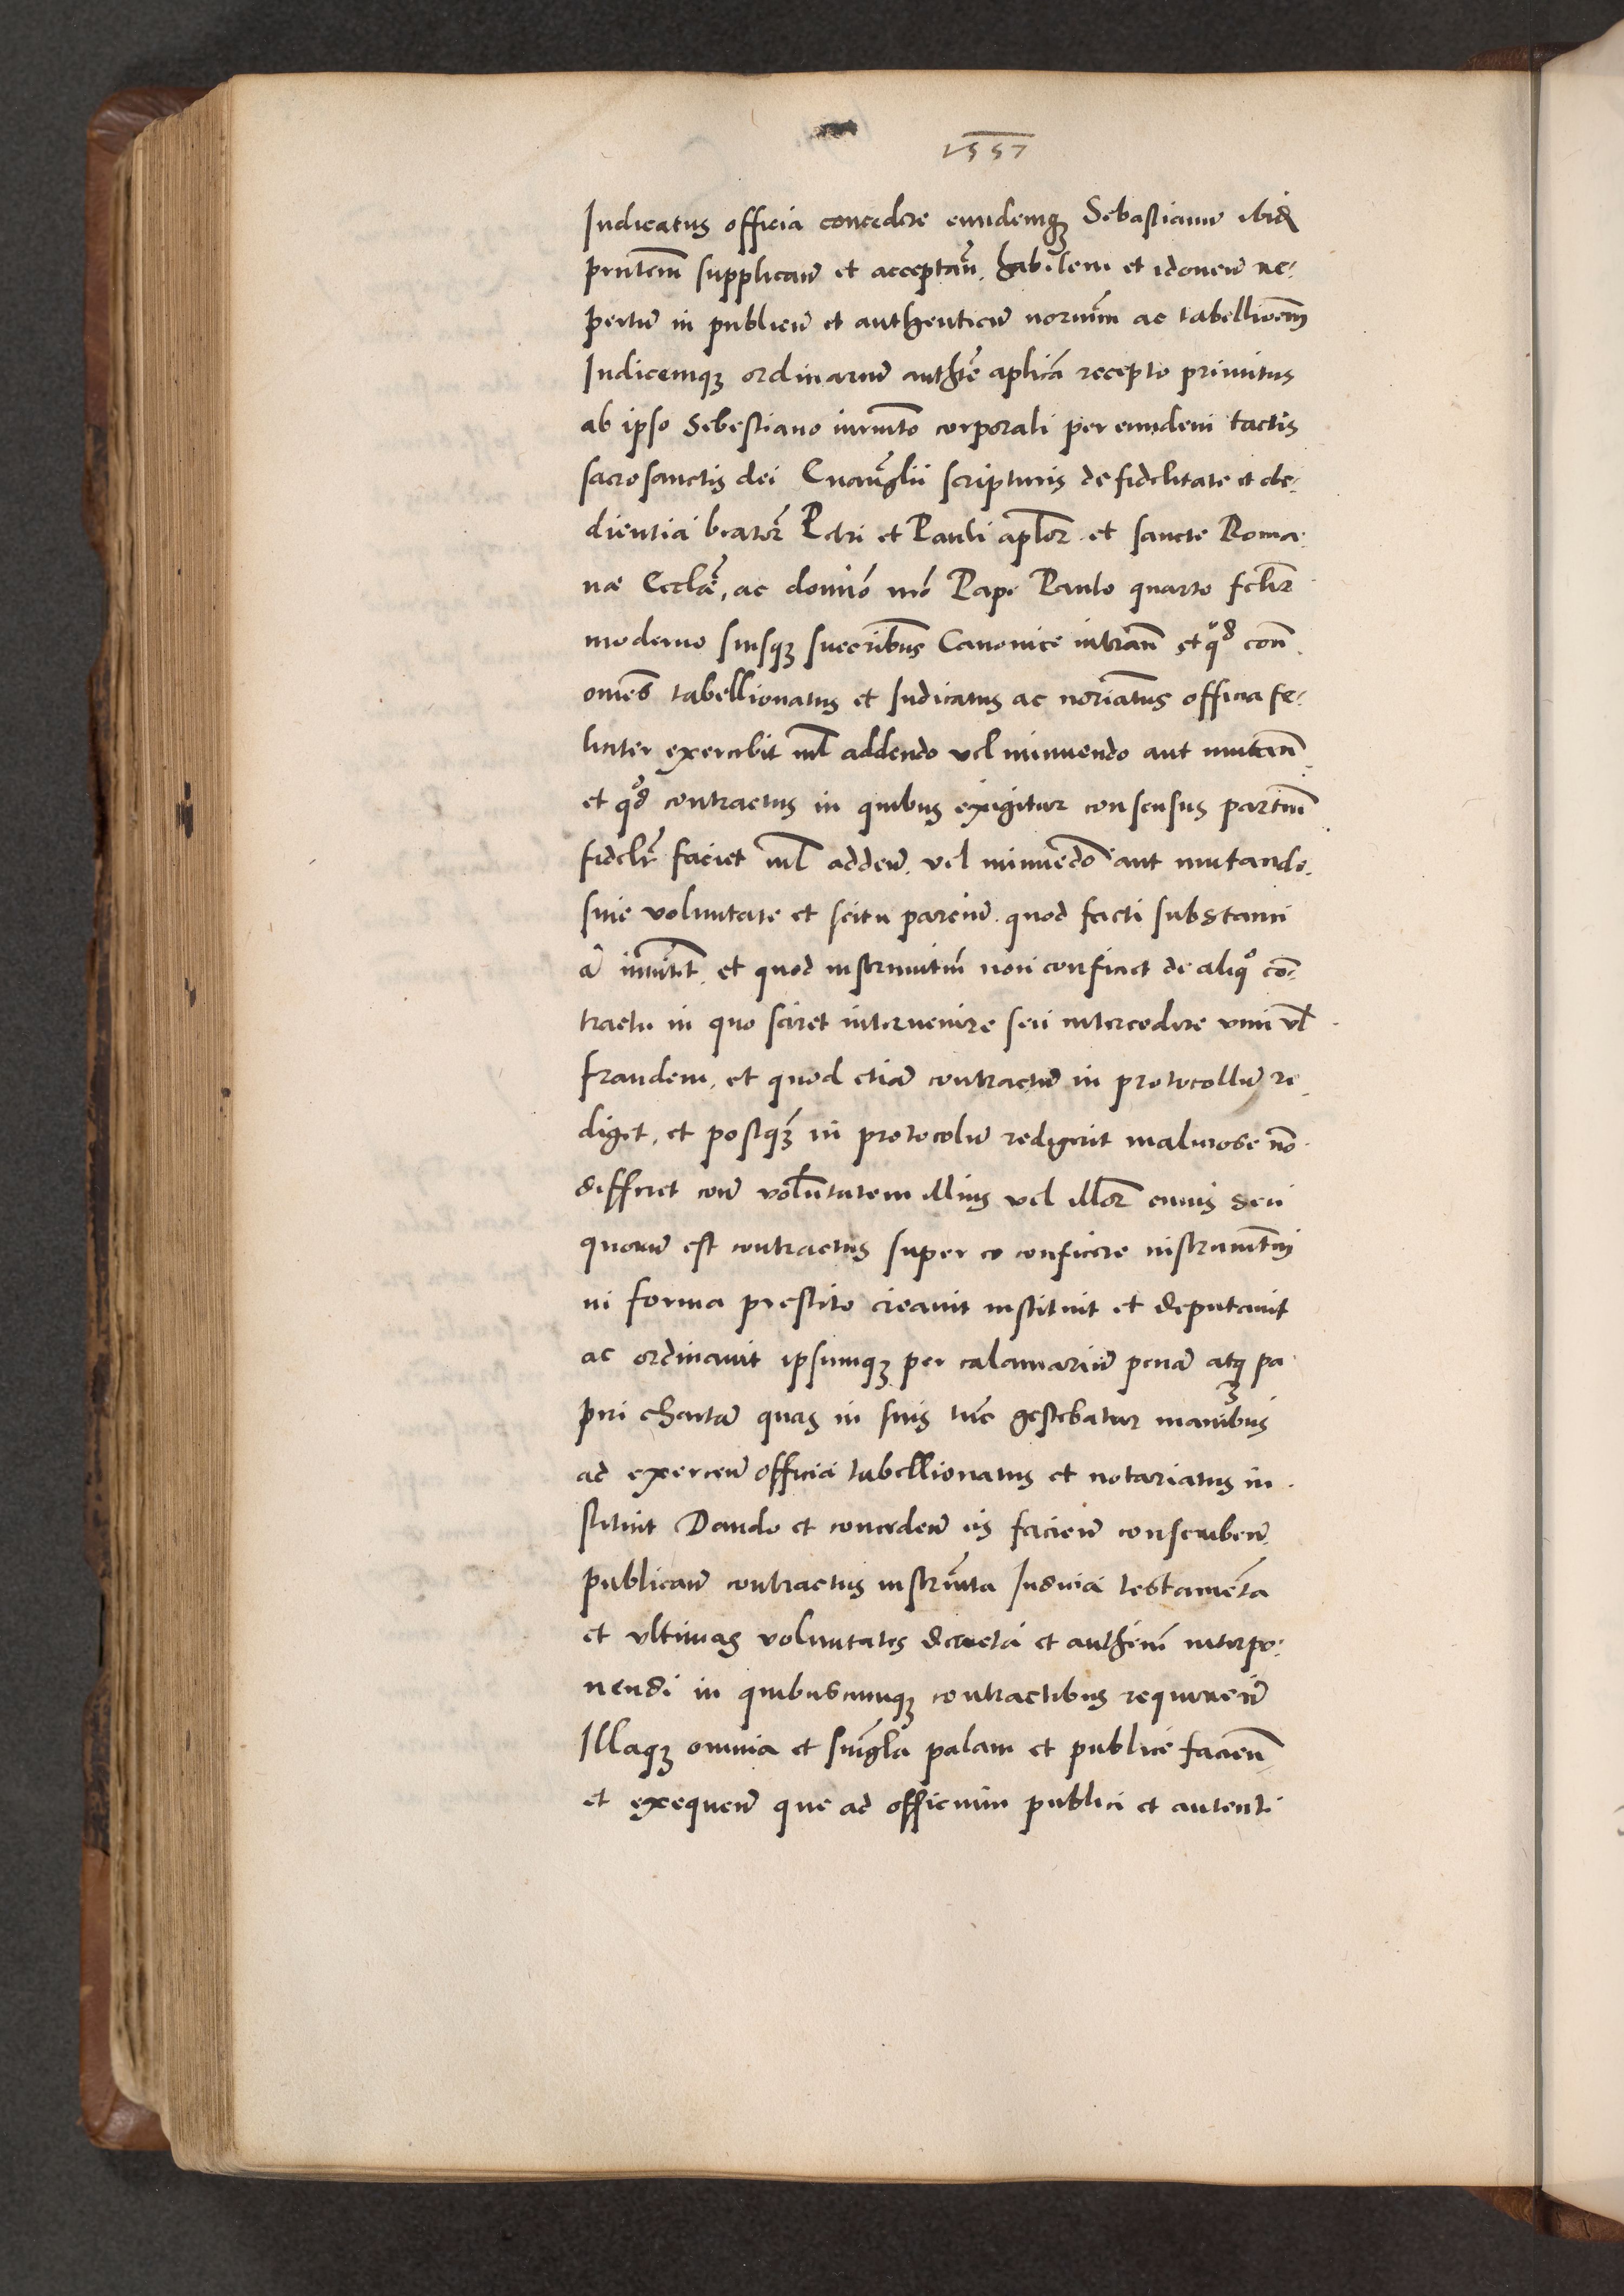 1557
Iudicatus officia concedere eundemq3 Sebastianū ibid
pn̄tem supplicañ et acceptañ. habilem et idoneū re-
pertū in publicū et authenticū norium ac tabellionem
Iudicemq3 ordinariū authte aplica recepto primitus
ab ipso Sebestiano iurmto corporali per eundem tactis
sacrosanctis dei Euanglii scripturis de fidelitate et obe-
dientia beator Petri et Pauli aplor. et sancte Roma.
næ Eccłæ, ac domino nro Pape Paulo quarto felir
moderno suisq3 succribus Canonice intrañ et qd con
omes tabellionatus et Iudicatus ac noriatus officia fe-
liciter exercebit nil addendo vel minuendo aut mutañ
et qd contractus in quibus exigitur consensus partium
fidelr faciet nil addeñ. vel minuendo aut mutando.
sine voluntate et scitu parciū. quod facti substanti
a immutet. et quod instrumtum non conficiet de aliqo con-
tractu in quo sciret interuenire seu intercedere vim vl
fraudem, et quod etiā contractū in protocollū re.
diget, et postq3 in protocolū redigerit malitiose no.
differet coñ voluntatem illius vel illor cuius seu
quorū est contractus super eo conficere instrumtm
in forma prestito creauit instituit et deputauit
ac ordinauit ipsumq3 per calamariū penā atq pa
piri chartā quas in suis tūc gestebatur manibus
ad exerceñ officia tabellionatus et notariatus in.
stituit Dando et concedeñ eis facieñ conscribeñ.
publicañ contractus instrumta Iudicia testamēta
et vltimas voluntates decreta et authem interpo-
nendi in quibuscumq3 contractibus requireñ
Illaq3 omnia et singla palam et publice facieñ
et exequeñ que ad officium publici et autenti